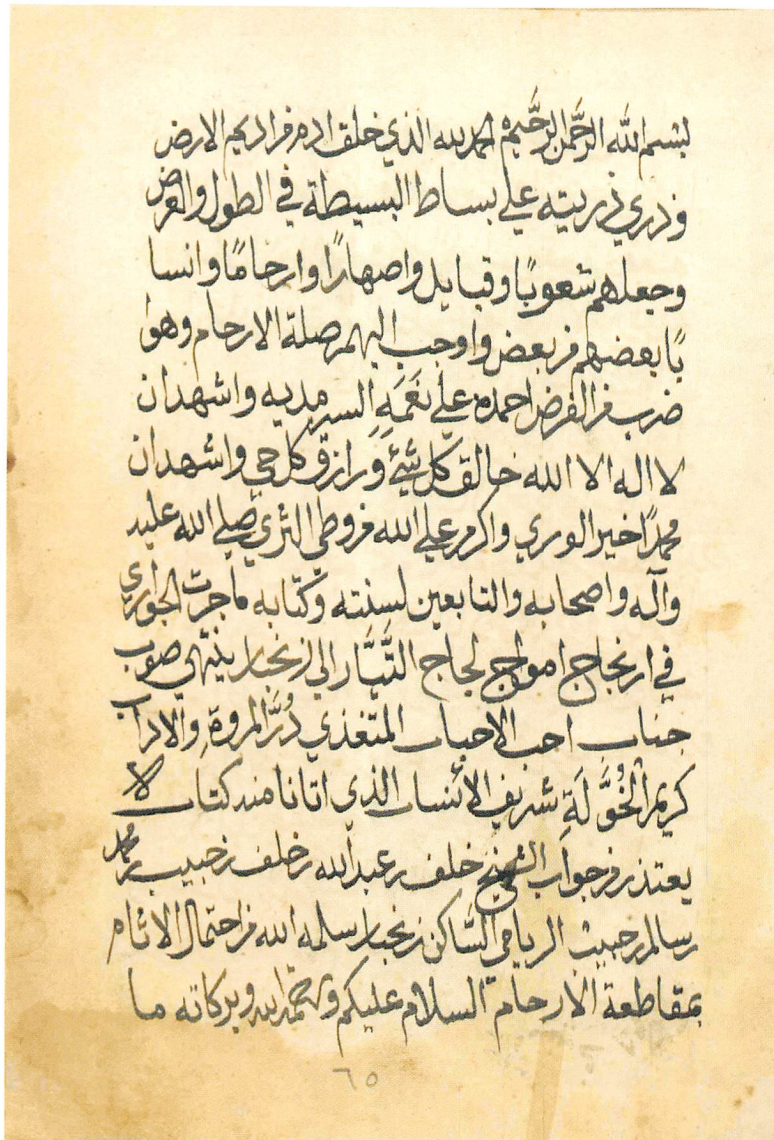 بِسْمِ اللَّهِ الرَّحْمَنِ الرَّحِيمِ الحمد لله الذي خلق ادم من اديم الارض
وذري ذريته علي بساط البسيطة في الطول والعرض
وجعلهم شعوبًا وقبايل واصهارًا وارحامًا وانسا
بًا بعضهم من بعض واوجب اليهم صلة الارحام وهو
ضرب من الفرض احمده علي نعمه السرمديه واشهد ان
لا اله الا الله خالق كل شيئ ورازق كل حي واشهد ان
محمدًا خير الوري واكرم علي الله من وطي الثري صلي الله عليه
وآله واصحابه والتابعين لسنته وكتابه ما جرت الجواري
في ارتجاج امواج لجاج التَّيَّار الي زنجبار ينتهي صوب
جناب احب الاحباب المتغذي دُرَّ المروة والاداب
كريم الخُؤُلَةِ شريف الأنساب الذي اتانا منه كتاب لا
يعتذر من جواب الشيخ خلف بن عبدالله بن خلف بن خبيب بن محمد
بن سالم بن حبيب الريامي السَّاكن زنجبار سلمه الله من احتمال الاثام
بمقاطعة الأرحام السلام عليكم ورحمة الله وبركاته ما
٦٥